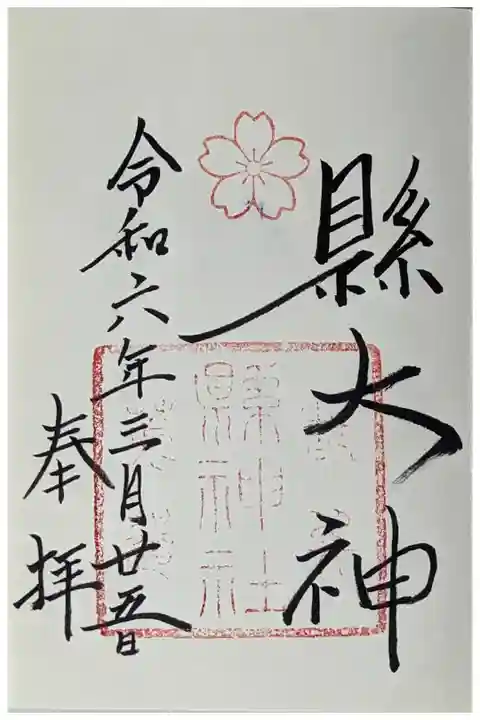 縣大神
令和六年三月廿五日
奉拝
縣神社